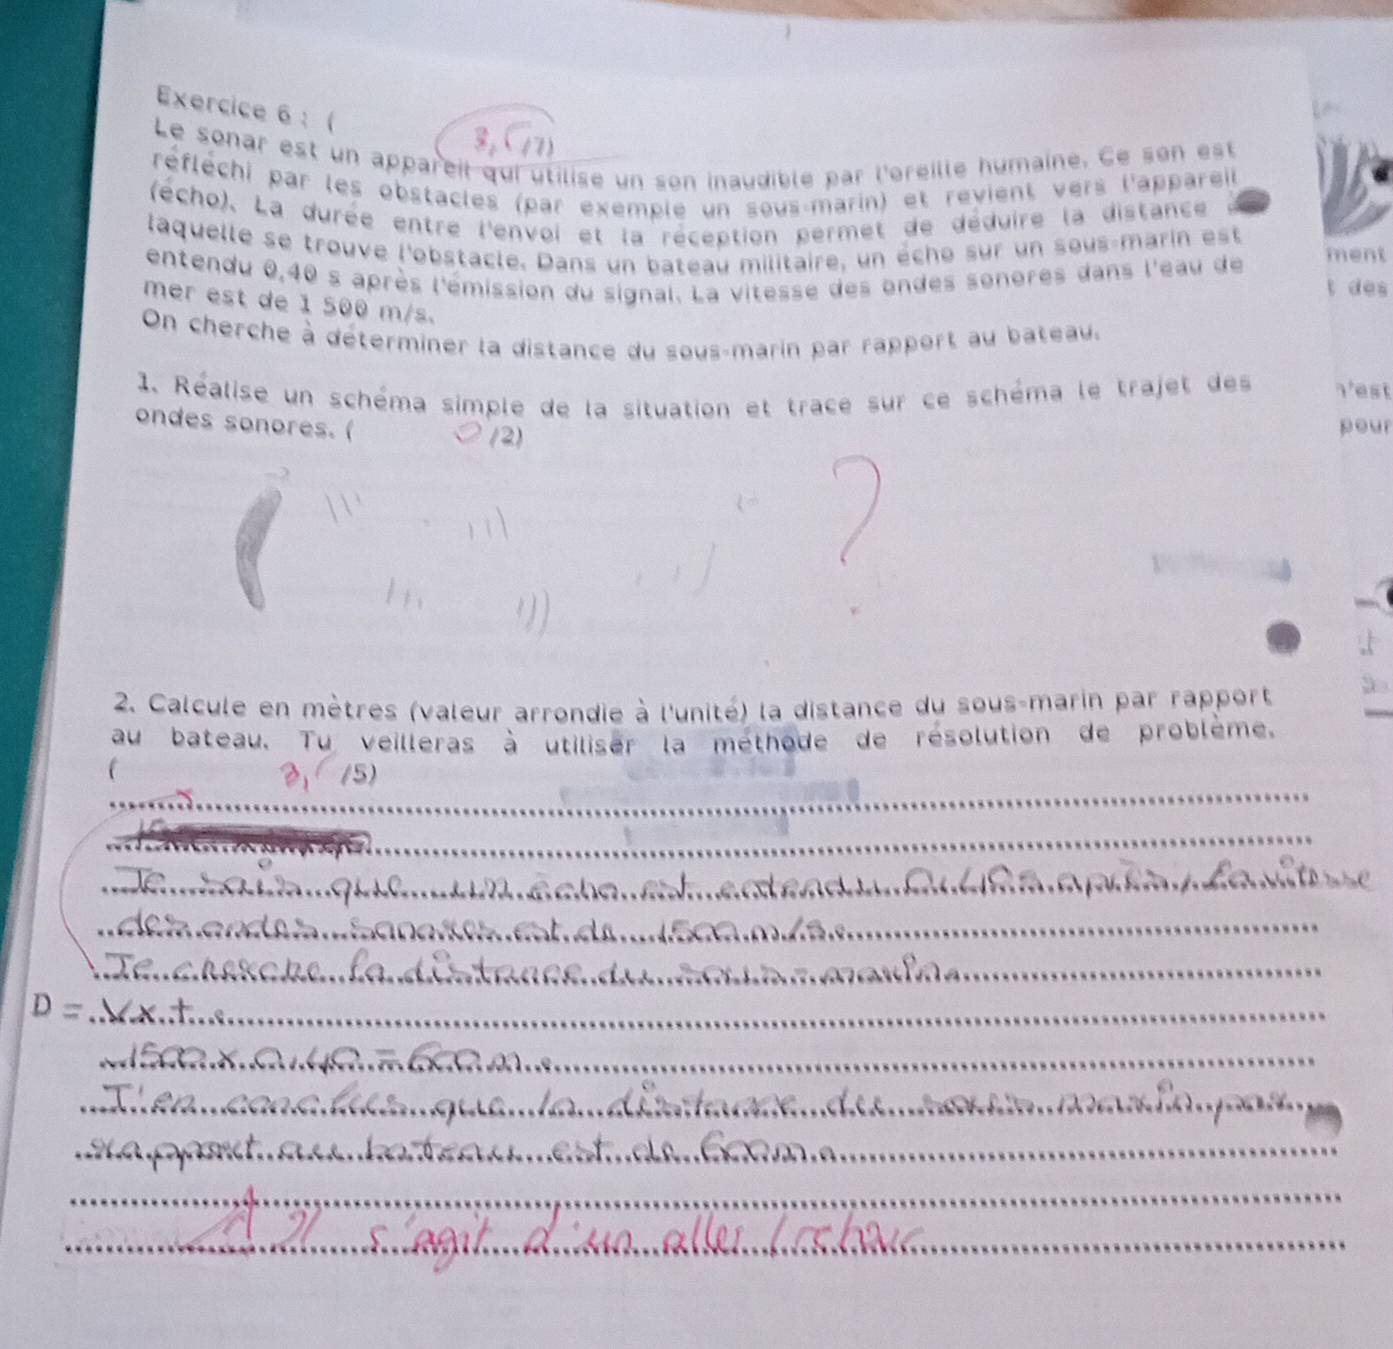 Exercice 6 : (
3, /7)
Le sonar est un appareil qui utilise un son inaudible par l'oreille humaine. Ce son est
réfléchi par les obstacles (par exemple un sous-marin) et revient vers l'appareil
(écho). La durée entre l'envoi et la réception permet de déduire la distance à
laquelle se trouve l'obstacle. Dans un bateau militaire, un écho sur un sous-marin est
entendu 0,40 s après l'émission du signal. La vitesse des ondes sonores dans l'eau de
mer est de 1 500 m/s.
On cherche à déterminer la distance du sous-marin par rapport au bateau.
1. Réalise un schéma simple de la situation et trace sur ce schéma le trajet des
ondes sonores. ( 0 /2)
?
2. Calcule en mètres (valeur arrondie à l'unité) la distance du sous-marin par rapport
au bateau. Tu veilleras à utiliser la méthode de résolution de problème.
( 3, /5)
Je sais que un écho est entendu 0,40 s après, la vitesse
des ondes sonores est de 1500 m/s.
Je cherche la distance du sous-marin.
D = V x t.
1500 x 0,40 = 600 m.
J'en conclus que la distance du sous-marin par
rapport au bateau est de 600m.
Il s'agit d'un aller/retour
ment
t des
n'est
pour